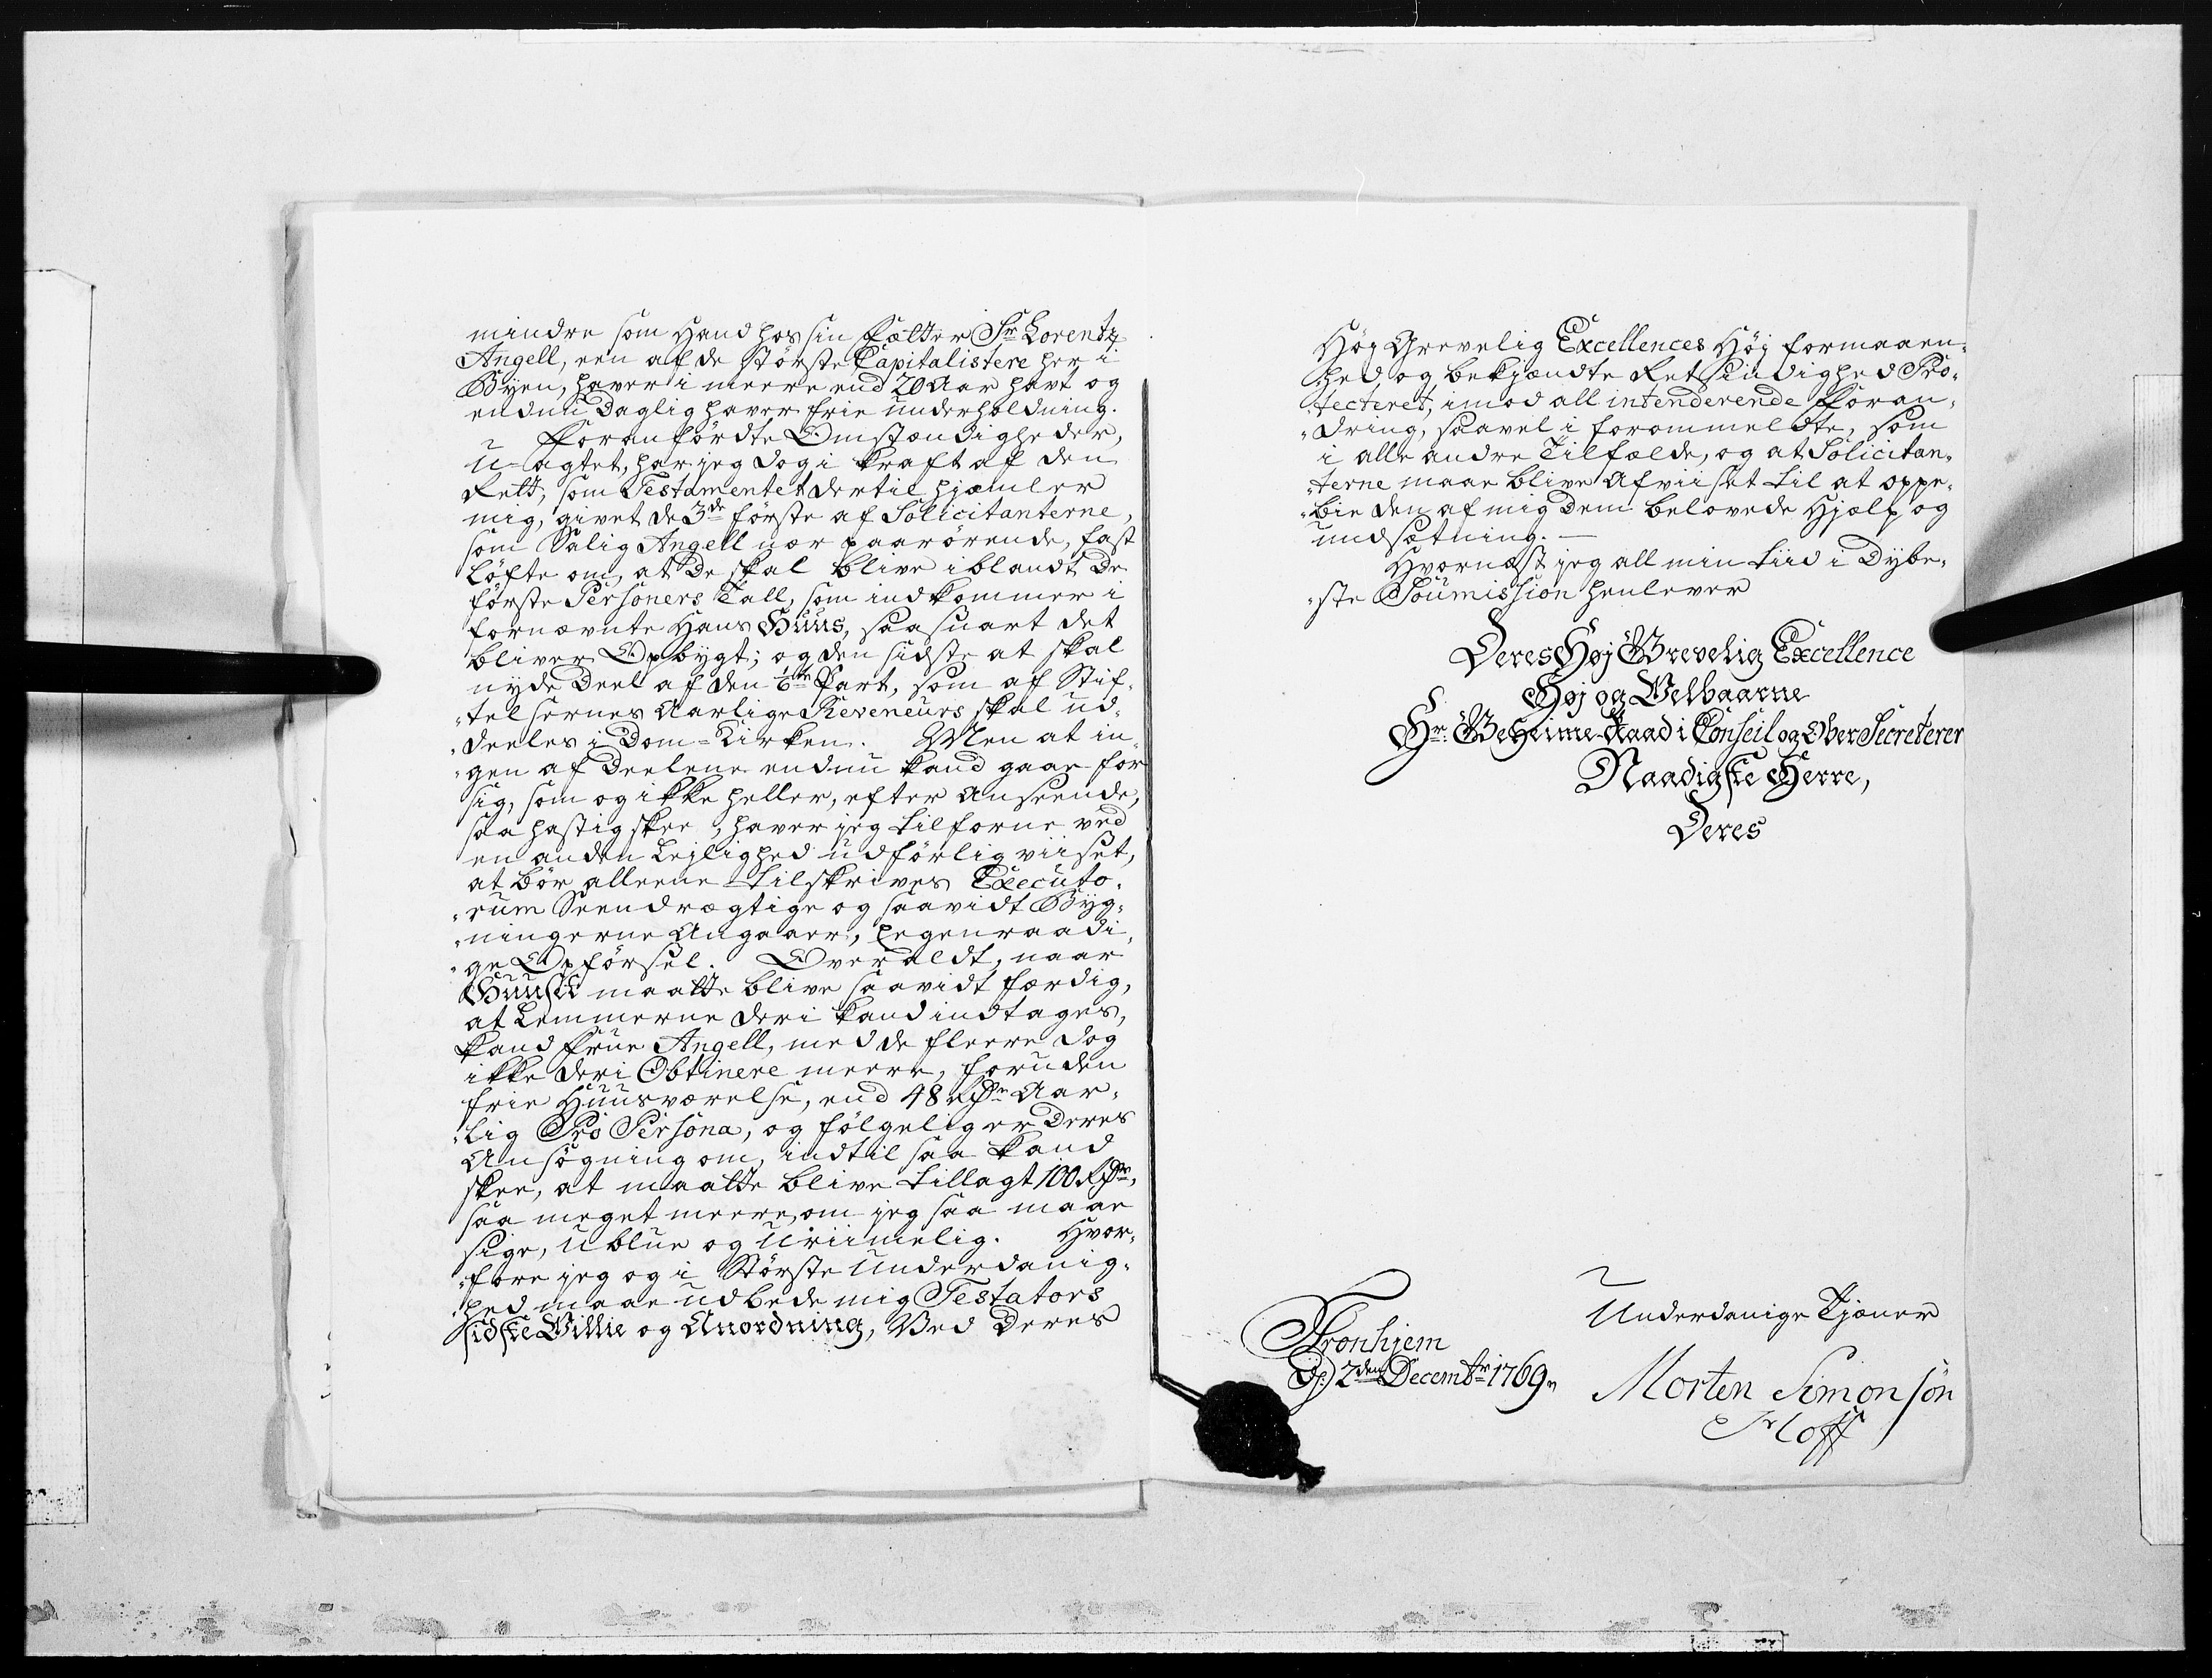 mindre som Hand hos sin Fætter Sr Lorentz
Angell, een af de største Capitalistere her i
Byen, haver i meere end 20 Aar havt og
endnu Daglig haver frie underholdning.
Foranførdte Omstændigheder,
U-agtet, har jeg dog i kraft af den
Rett, som Testamentet dertil hjemler
mig, givet de 3de første af Solicitanterne,
som Salig Angell nær paarørende, fast
Løfte om, at De skal blive iblandt De
første Persohners Tall, som indkommer i
fornævnte Hans Huus, saasnart det
bliver Opbygt; og den sidste at skal
nyde Deel af den 1/6te Part, som af Stif-
telsernes Aarlige Reveneurs skal ud-
deeles i Dom-Kirken. Men at in-
gen af Deelene endnu kand gaae for
sig, som og ikke heller, efter Anseende,
saa hastig skee, haver jeg tilforne ved
en anden Lejlighed udførlig viiset,
at bør alleene tilskrives Executo-
rum Seendrægtige og saavidt Byg-
ningerne Angaaer, Eegenraadi-
ge Opførsel. Overaldt, naar
Huuset maatte blive saavidt færdig,
at Lemmerne deri kand indtages,
kand Frue Angell, med de fleere dog
ikke deri Obtinere meere, foruden
frie Huusværelse, end 48 Rdr Aar-
lig Pro Persona, og følgelig er Deres
Ansøgning om, indtil saa kand
skee, at maatte blive tillagt 100 Rdr,
saa meget meere, om jeg saa maae
sige, Ublue og Uriimelig. Hvor-
fore jeg og i Største Underdanig-
hed maae udbede mig Testators
sidste Villie og Anordning, Ved Deres
Høy Grevelig Excellences Høj formaaen-
hed og bekjændte Retsindighed Pro-
tecteret, imod all intenderende Foran-
dring, saavel i forommeldte, som
i alle andre Tilfælde, og at Solicitan-
terne maae blive Afviiset til at oppe-
bie den af mig Dem belovede Hjelp og
undsætning. —
Hvornæst jeg all min tiid i Dybe-
ste Soumission henlever
Deres Høj Grevelig Excellence
Høj og Velbaarne
Hr. Geheime-Raad i Conseil og Ober Secreterer
Naadigste Herre,
Deres
Tronhjem
D: 2den Decembr 1769.
Underdanige Tjener
Morten Simonsøn
Hoff